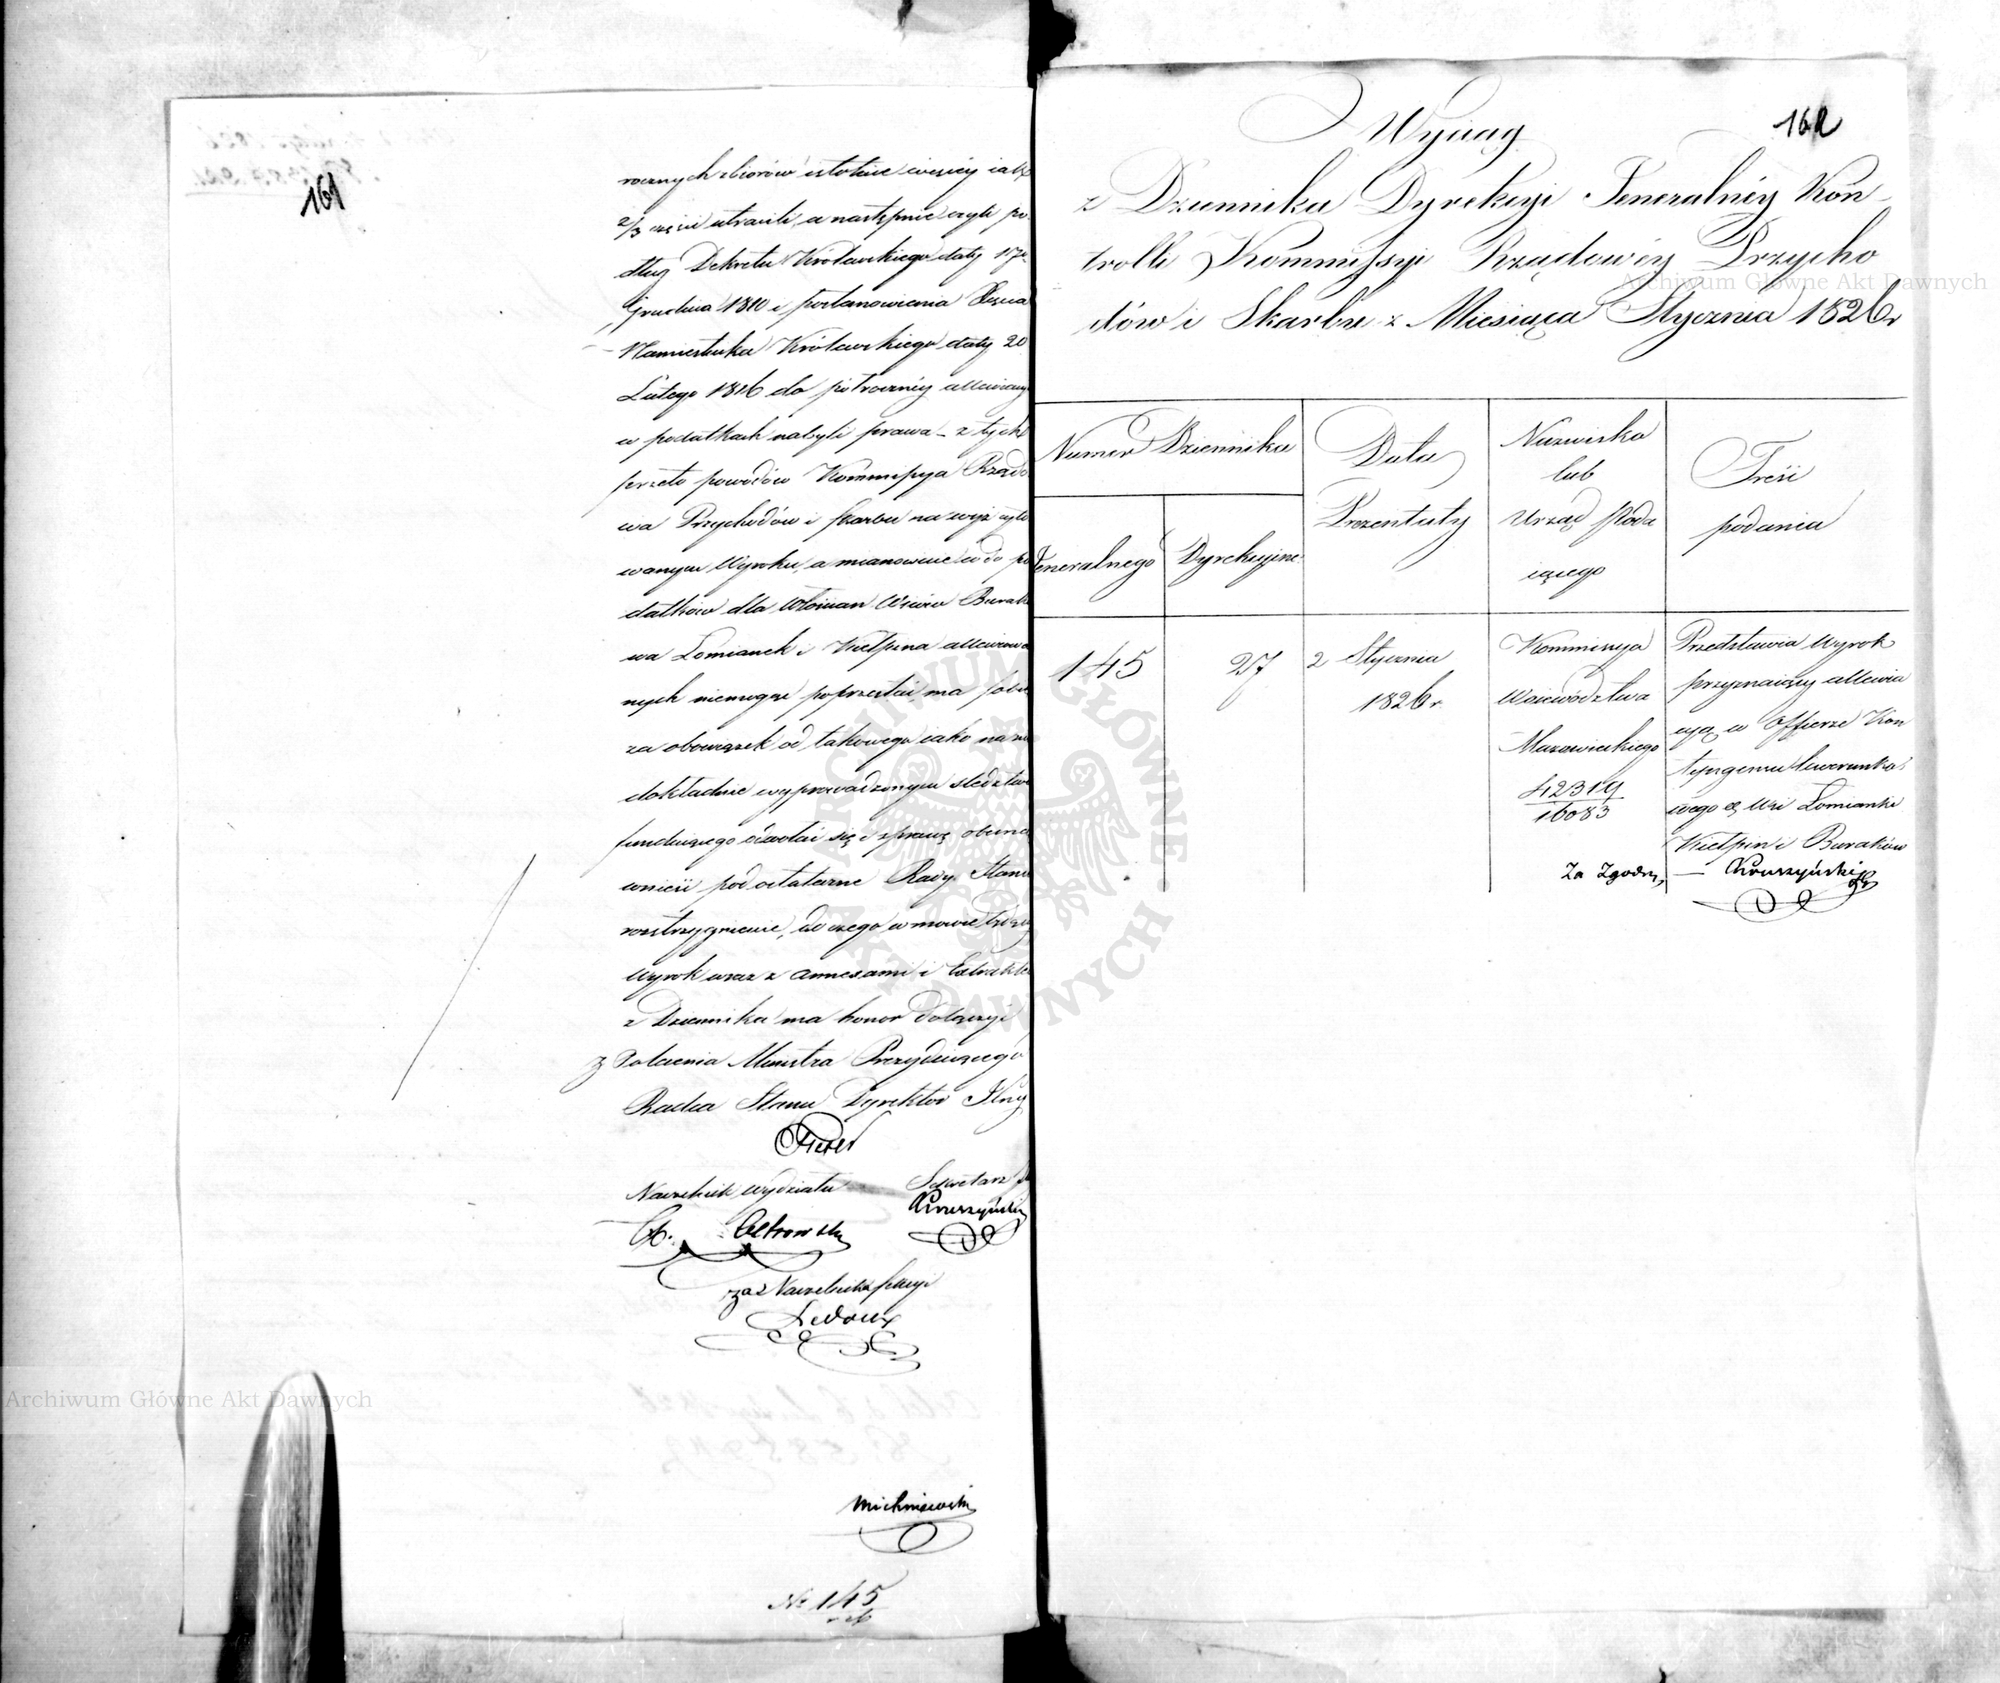 161
rocznych zbiorów istotnie więcéj iak
2/3 części utracili, a następnie czyli po
dług Dekretu Królewskiego daty 17
Grudnia 1810 i postanowienia Xięcia
Namiestnika Królewskiego daty 20
Lutego 1816 do półroczney allewiacyi
w podatkach nabyli prawa – z tych
przeto powodów Kommissya Rządo
wa Przychodów i Skarbu na wyż cyto
wanym Wyroku, a mianowicie co do po
datków dla Włościan Wsiów Burako
wa Łomianek i Kiełpina allewiowa
nych niemogąc poprzestać, ma sobie
za obowiązek od takowego iako na nie
dokładnie wyprowadzonym śledztwie
funduiącego odwołać się i sprawę
wnieść pod ostateczne Rady Stanu
rozstrzygnienie, do czego w mowie będący
Wyrok wraz z annexami i Extraktem
z Dziennika ma honor dołączyć
z Polecenia Ministra Prezyduiącego
Radca Stanu Dyrektor Jlny
Naczelnik wydziału Sekretarz
Ostrowski Kruszyński
za Naczelnika sekcyi
Ledoux
Michniewski
№ 145
162
Wyciąg
z Dziennika Dyrekcyi Jeneralnéy Kon
trolli Kommissyi Rządowéy Przycho
dów i Skarbu z Miesiąca Stycznia 1826 r
Numer Dziennika
Jeneralnego
Dyrekcyine
Data
Prezentaty
Nazwisko
lub
Urząd Poda
iącego
Treść
podania
145
27
2 Stycznia
1826 r.
Kommissya
Woiewództwa
Mazowieckiego
42319
16083
Przedstawia Wyrok
przyznaiący allewia
cyą w Offierze Kon
tyngensu liwerunko
wego Wsi Łomianki
Kiełpin i Buraków
Za Zgodn. — Kruszyński
Archiwum Główne Akt Dawnych
Archiwum Główne Akt Dawnych
ARCHIWUM GŁÓWNE AKT DAWNYCH